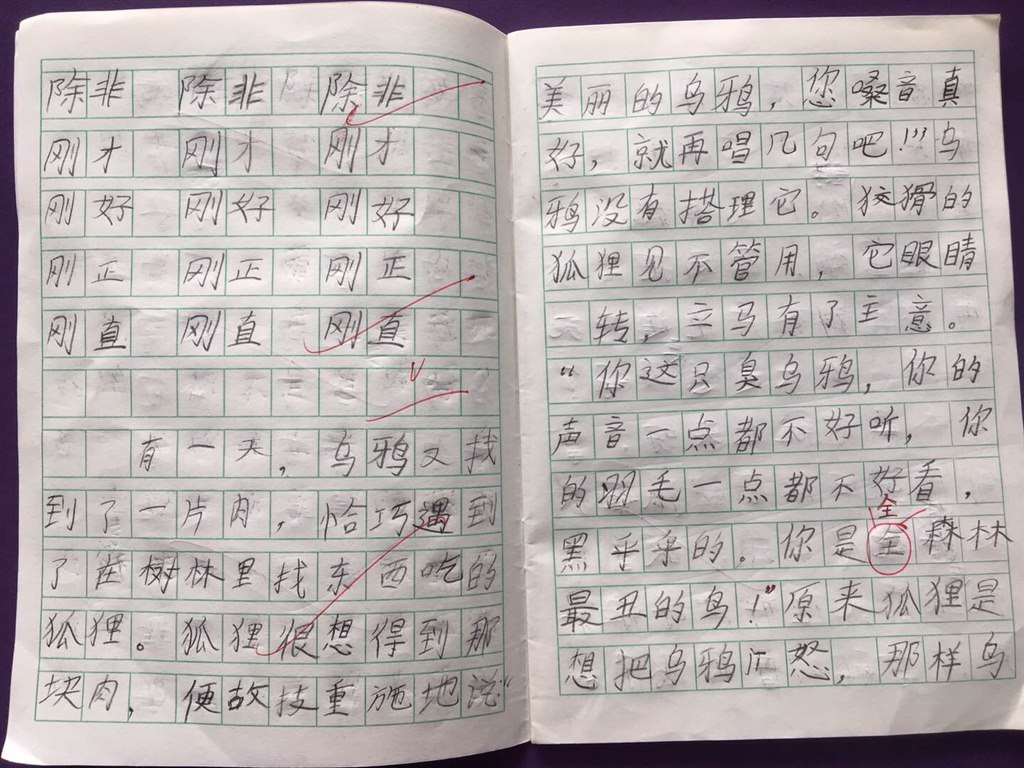 除非 除非 除非
刚才 刚才 刚才
刚好 刚好 刚好
刚正 刚正 刚正
刚直 刚直 刚直
有一天，乌鸦又找
到了一片肉，恰巧遇到
了在树林里找东西吃的
狐狸。狐狸很想得到那
块肉，便故技重施地说“
美丽的乌鸦，您嗓音真
好，就再唱几句吧！”乌
鸦没有搭理它。狡猾的
狐狸见不管用，它眼睛
一转，立马有了主意。
“你这只臭乌鸦，你的
声音一点都不好听，你
的羽毛一点都不好看，
全
黑乎乎的。你是全森林
最丑的鸟！”原来狐狸是
想把乌鸦 怒，那样乌